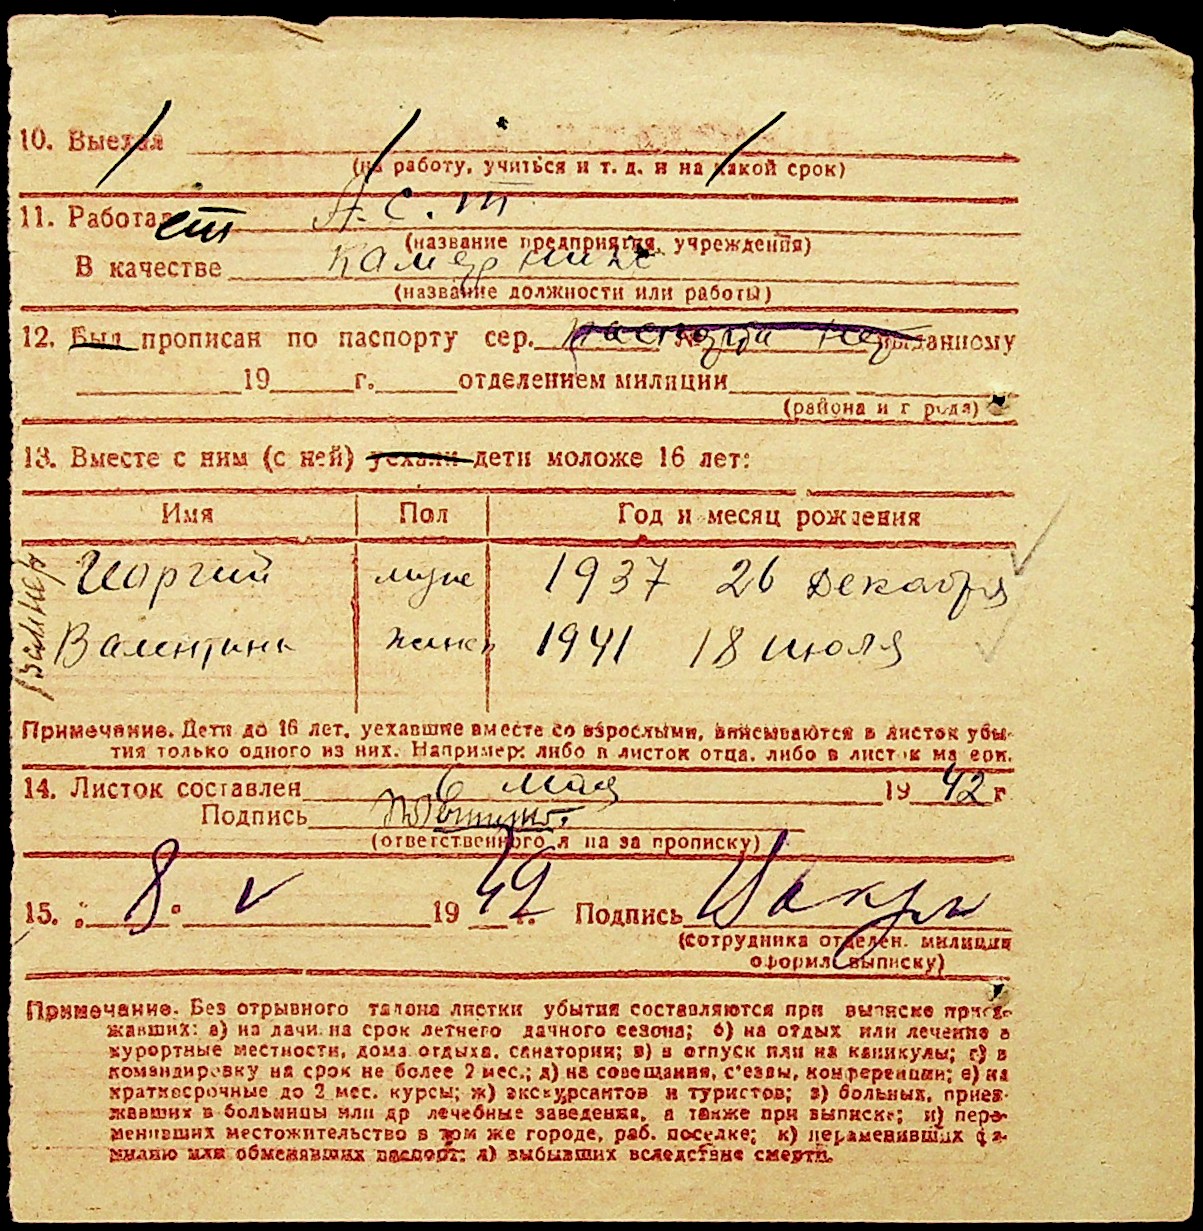 10. Выехал
(на работу, учиться и т. д. и на какой срок)
11. Работает А. С. т
(название предприятия, учреждения)
В качестве
(название должности или работы)
12. Был прописан по паспорту сер. паспорта нет № выданному
19 г. отделением милиции
(района и города)
13. Вместе с ним (с ней) уехали дети моложе 16 лет:
Имя Пол Год и месяц рождения
Георгий муж 1937 26 декабря
Валентина женск 1941 18 июля
Примечание. Дети до 16 лет, уехавшие вместе со взрослыми, вписываются в листок убы-
тия только одного из них. Например: либо в листок отца, либо в листок матери.
14. Листок составлен 6 мая 1942 г
Подпись
(ответственного лица за прописку)
15. „ 8 " V 1942 г. Подпись
(сотрудника отделен. милиции
оформл. выписку)
Примечание. Без отрывного талона листки убытия составляются при выписке приез-
жавших: а) на дачи на срок летнего дачного сезона; б) на отдых или лечение в
курортные местности, дома отдыха, санатории; в) в отпуск или на каникулы; г) в
командировку на срок не более 2 мес.; д) на совещания, с'езды, конференции; е) на
краткосрочные до 2 мес. курсы; ж) экскурсантов и туристов; з) больных, приез-
жавших в больницы или др лечебные заведения, а также при выписке; и) пере-
менивших местожительство в том же городе, раб. поселке; к) переменивших фа-
милию или обменявших паспорт; л) выбывших вследствие смерти.